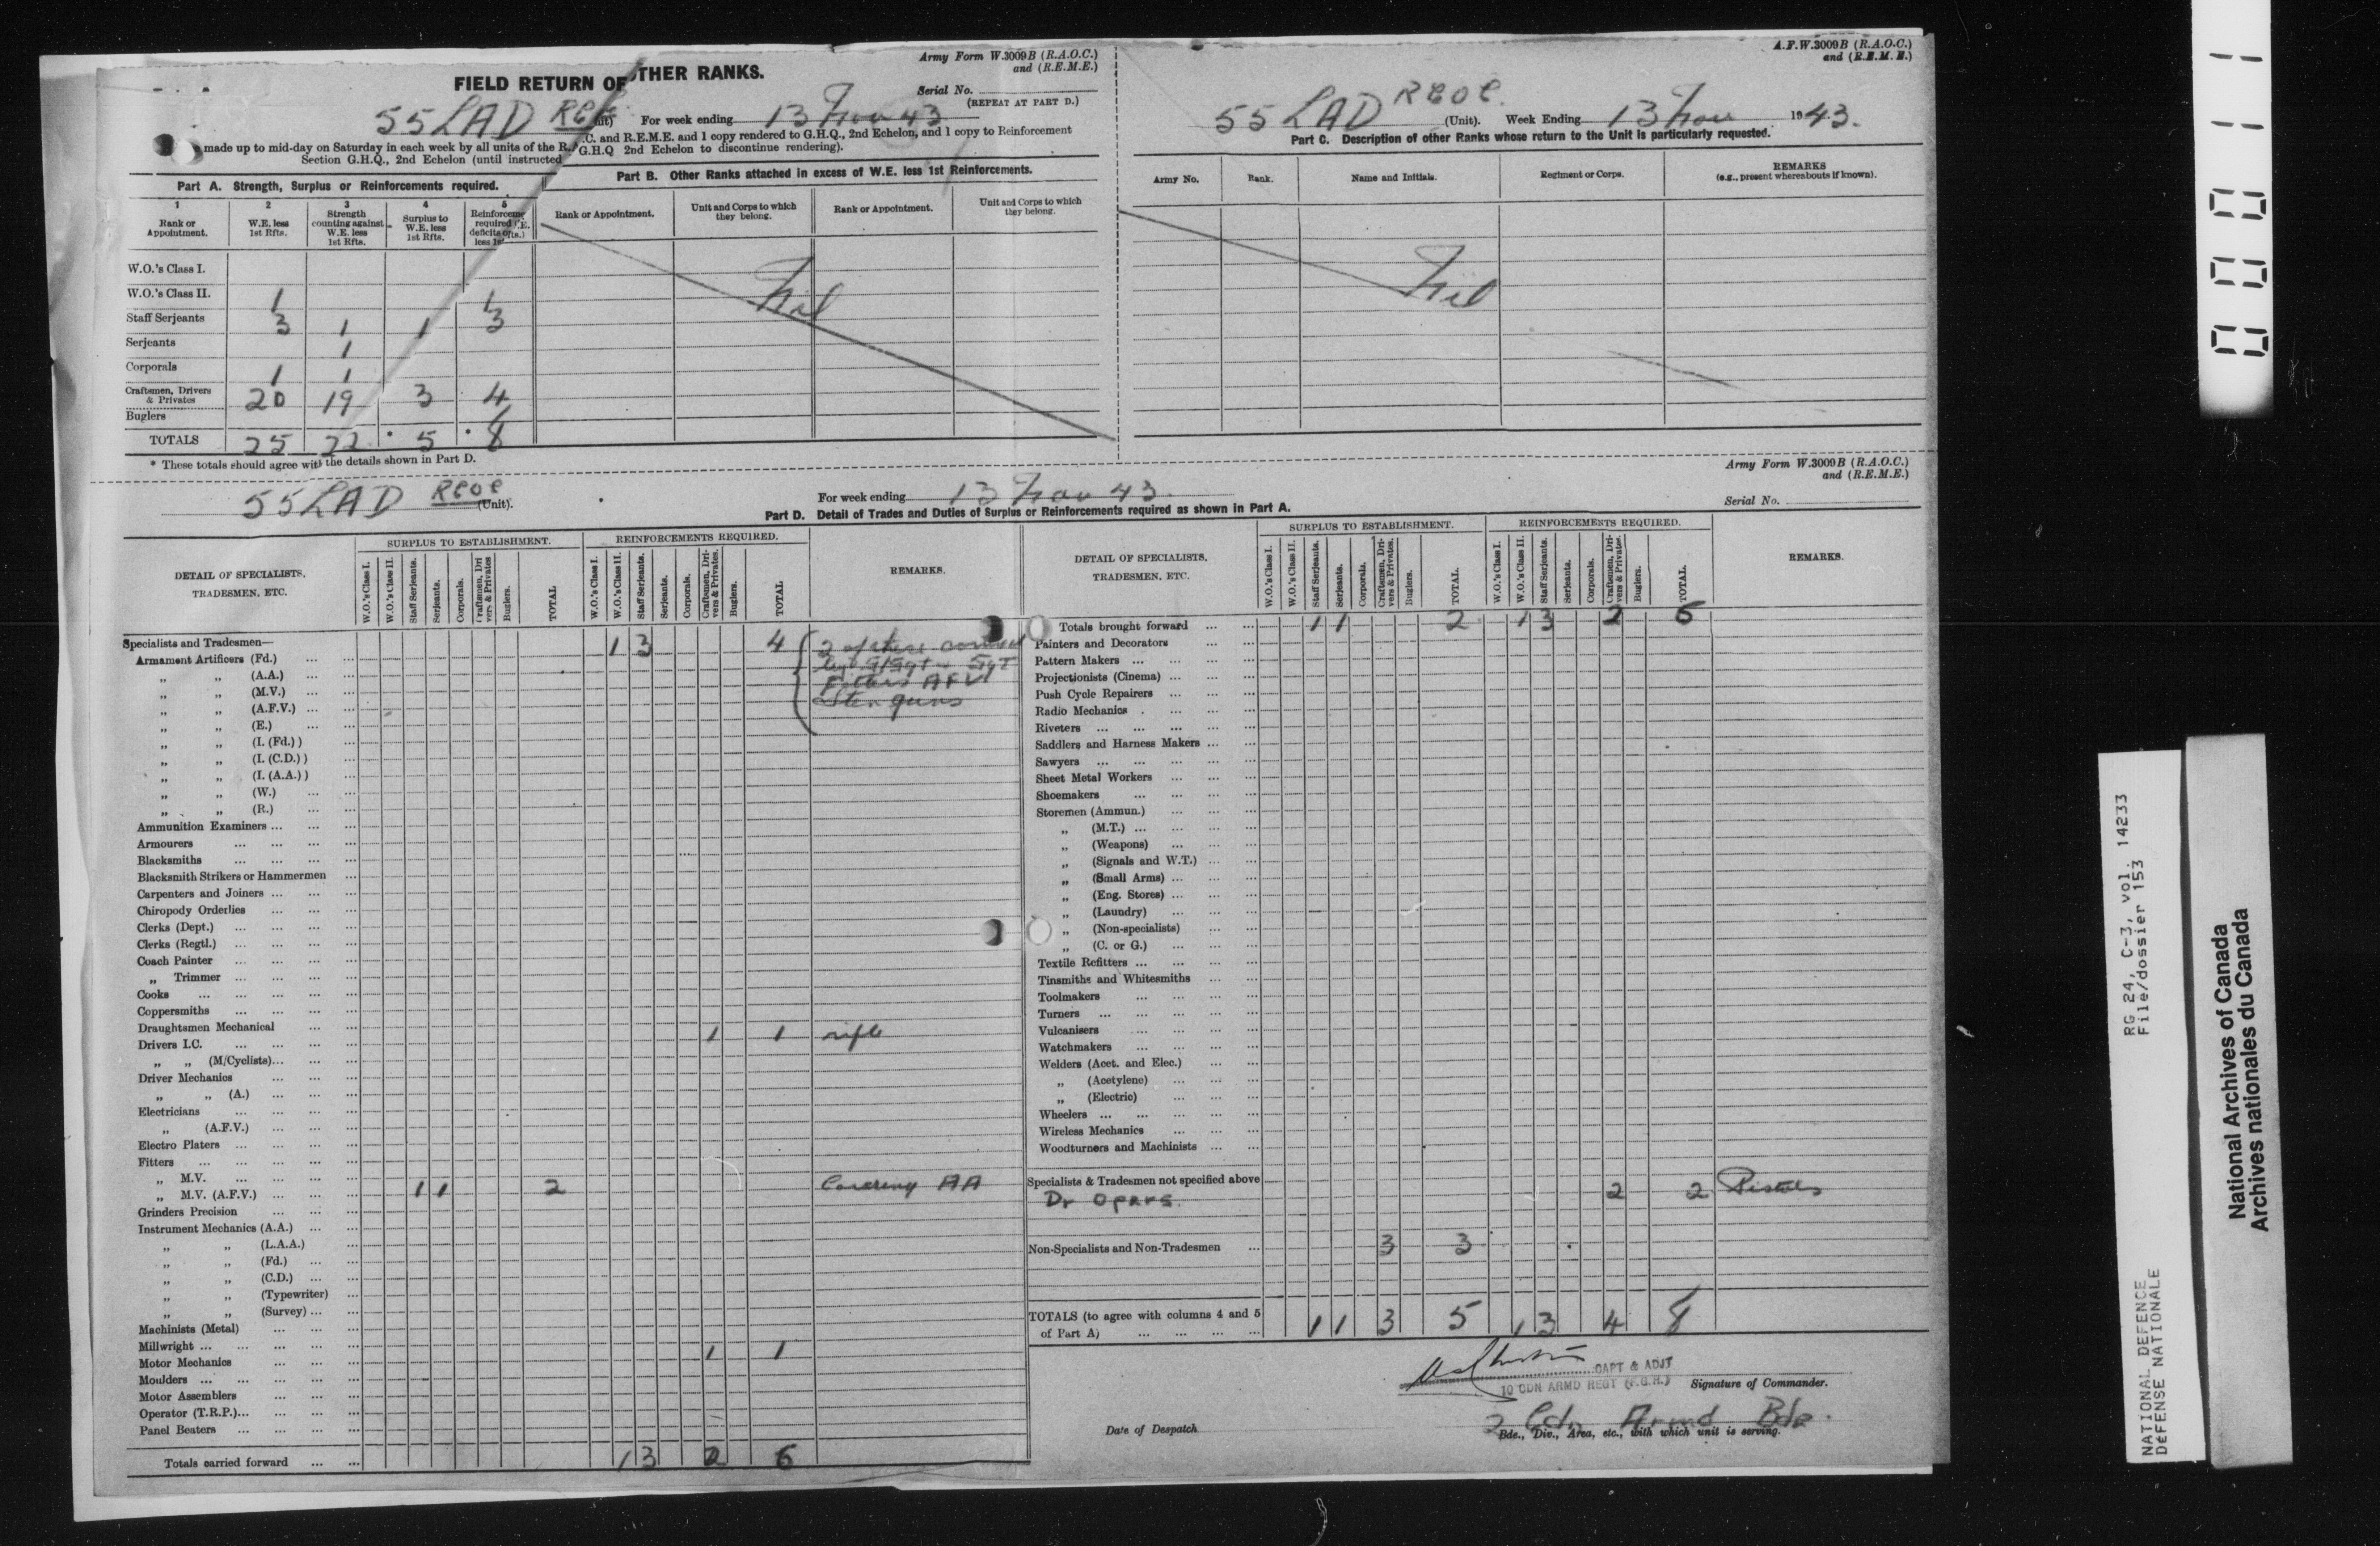 Army Form W.3009B (R.A.O.C.)
and (R.E.M.E.)
FIELD RETURN OF OTHER RANKS.
Serial No.
(REPEAT AT PART D.)
55 LAD For week ending 13 Nov 43
made up to mid-day on Saturday in each week by all units of the R. .C. and R.E.M.E. and 1 copy rendered to G.H.Q., 2nd Echelon, and 1 copy to Reinforcement
Section G.H.Q., 2nd Echelon (until instructed G.H.Q 2nd Echelon to discontinue rendering).
Part A. Strength, Surplus or Reinforcements required.
1 2 3 4 5
Rank or Appointment. W.E. less 1st Rfts. Strength counting against W.E. less 1st Rfts. Surplus to W.E. less 1st Rfts. required
W.O.'s Class I.
W.O.'s Class II. 1 1
Staff Serjeants 3 1 1 3
Serjeants 1
Corporals 1 1
Craftsmen, Drivers & Privates 20 19 3 4
Buglers
TOTALS 25 22 * 5 * 8
* These totals should agree with the details shown in Part D.
Part B. Other Ranks attached in excess of W.E. less 1st Reinforcements.
Rank or Appointment. Unit and Corps to which they belong. Rank or Appointment. Unit and Corps to which they belong.
Nil
A.F.W.3009B (R.A.O.C.)
and (R.E.M.E.)
55 LAD RCOC. (Unit). Week Ending 13 Nov 1943.
Part C. Description of other Ranks whose return to the Unit is particularly requested.
Army No. Rank. Name and Initials. Regiment or Corps. REMARKS (e.g., present whereabouts if known).
Nil
Army Form W.3009B (R.A.O.C.)
and (R.E.M.E.)
55 LAD RCOC (Unit). For week ending 13 Nov 43. Serial No.
Part D. Detail of Trades and Duties of Surplus or Reinforcements required as shown in Part A.
DETAIL OF SPECIALISTS, TRADESMEN, ETC.
SURPLUS TO ESTABLISHMENT.
W.O.'s Class I. W.O.'s Class II. Staff Serjeants. Serjeants. Corporals. Craftsmen, Drivers & Privates Buglers. TOTAL
REINFORCEMENTS REQUIRED.
W.O.'s Class I. W.O.'s Class II. Staff Serjeants. Serjeants. Corporals. Craftsmen, Drivers & Privates. Buglers. TOTAL
REMARKS.
Specialists and Tradesmen—
Armament Artificers (Fd.) 1 3 4 2 of these
„ „ (A.A.) S/Sgt + Sgt
„ „ (M.V.) Fitters AFV
„ „ (A.F.V.) Sten guns
„ „ (E.)
„ „ (I. (Fd.) )
„ „ (I. (C.D.) )
„ „ (I. (A.A.) )
„ „ (W.)
„ „ (R.)
Ammunition Examiners
Armourers
Blacksmiths
Blacksmith Strikers or Hammermen
Carpenters and Joiners
Chiropody Orderlies
Clerks (Dept.)
Clerks (Regtl.)
Coach Painter
„ Trimmer
Cooks
Coppersmiths
Draughtsmen Mechanical
Drivers I.C. 1 1 rifle
„ „ (M/Cyclists)
Driver Mechanics
„ „ (A.)
Electricians
„ (A.F.V.)
Electro Platers
Fitters
„ M.V.
„ M.V. (A.F.V.) 1 1 2 Covering AA
Grinders Precision
Instrument Mechanics (A.A.)
„ „ (L.A.A.)
„ „ (Fd.)
„ „ (C.D.)
„ „ (Typewriter)
„ „ (Survey)
Machinists (Metal)
Millwright
Motor Mechanics 1 1
Moulders
Motor Assemblers
Operator (T.R.P.)
Panel Beaters
Totals carried forward 1 3 2 6
DETAIL OF SPECIALISTS, TRADESMEN, ETC.
SURPLUS TO ESTABLISHMENT.
W.O.'s Class I. W.O.'s Class II. Staff Serjeants. Serjeants. Corporals. Craftsmen, Drivers & Privates. Buglers. TOTAL.
REINFORCEMENTS REQUIRED.
W.O.'s Class I. W.O.'s Class II. Staff Serjeants. Serjeants. Corporals. Craftsmen, Drivers & Privates. Buglers. TOTAL.
REMARKS.
Totals brought forward 1 1 2 1 3 2 6
Painters and Decorators
Pattern Makers
Projectionists (Cinema)
Push Cycle Repairers
Radio Mechanics
Riveters
Saddlers and Harness Makers
Sawyers
Sheet Metal Workers
Shoemakers
Storemen (Ammun.)
„ (M.T.)
„ (Weapons)
„ (Signals and W.T.)
„ (Small Arms)
„ (Eng. Stores)
„ (Laundry)
„ (Non-specialists)
„ (C. or G.)
Textile Refitters
Tinsmiths and Whitesmiths
Toolmakers
Turners
Vulcanisers
Watchmakers
Welders (Acet. and Elec.)
„ (Acetylene)
„ (Electric)
Wheelers
Wireless Mechanics
Woodturners and Machinists
Specialists & Tradesmen not specified above
Dr Oprrs. 2 2 Pistols
Non-Specialists and Non-Tradesmen 3 3
TOTALS (to agree with columns 4 and 5
of Part A) 1 1 3 5 1 3 4 8
CAPT & ADJT
10 CDN ARMD REGT (F.G.H.) Signature of Commander.
2 Cdn Armd Bde.
Date of Despatch Bde., Div., Area, etc., with which unit is serving.
00011
RG 24, C-3, vol. 14233
File/dossier 153
NATIONAL DEFENCE
DÉFENSE NATIONALE
National Archives of Canada
Archives nationales du Canada